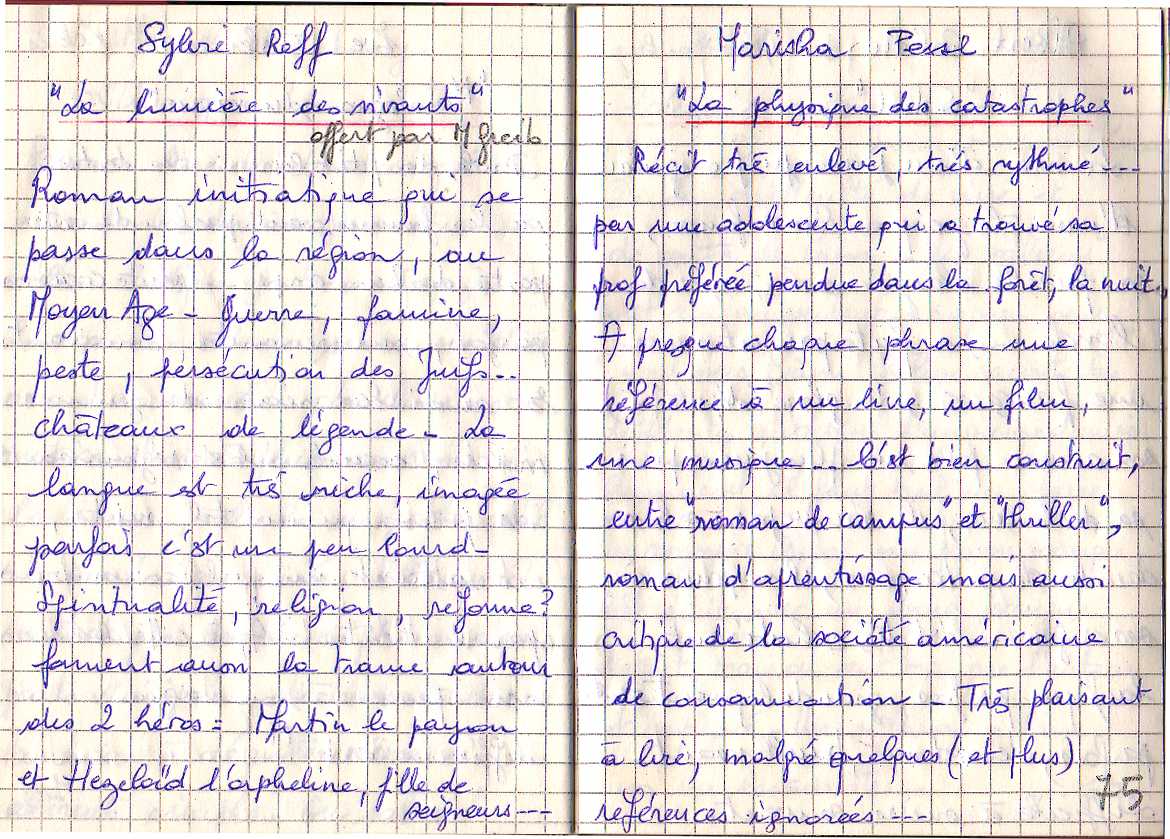 Sylvie Reff
"La lumière des vivants"
offert par M Greib
Roman initiatique qui se
passe dans la région, au
Moyen Age - Guerre, famine,
peste, persécution des Juifs..
châteaux de légende - La
langue est très riche, imagée
parfois c'est un peu lourd -
Spiritualité, religion, reforme?
forment aussi la trame autour
des 2 héros = Martin le paysan
et Hezeloïd l'orpheline, fille de
seigneurs ---
Marisha Pessl
"La physique des catastrophes"
Récit très enlevé, très rythmé ---
par une adolescente qui a trouvé sa
prof préférée pendue dans la forêt, la nuit.
A presque chaque phrase une
référence à un livre, un film,
une musique .. C'est bien construit,
entre "roman de campus" et "thriller",
roman d'aprentissage mais aussi
critique de la société américaine
de consommation - Très plaisant
à lire, malgré quelques (et plus)
références ignorées ---
75